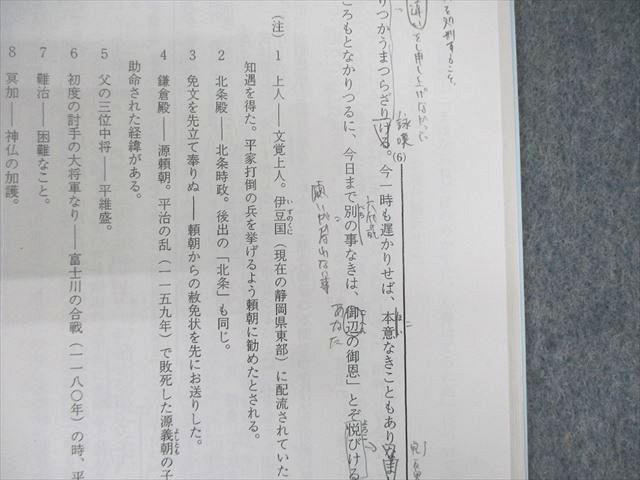 を処刑すること。
りつかうまつらざりける。今一時も遅かりせば、本意なきこともありなまし
詠嘆
(6)
ほい
ころもとなかりつるに、今日まで別の事なきは、御辺の御恩」とぞ悦びける
あなた
(注) 1 上人――文覚上人。伊豆国(現在の静岡県東部)に配流されていた
いずのくに
知遇を得た。平家打倒の兵を挙げるよう頼朝に勧めたとされる。
2 北条殿――北条時政。後出の「北条」も同じ。
3 免文を先立て奉りぬ――頼朝からの赦免状を先にお送りした。
4 鎌倉殿――源頼朝。平治の乱(一一五九年)で敗死した源義朝の子
よしとも
助命された経緯がある。
5 父の三位中将――平維盛。
6 初度の討手の大将軍なり――富士川の合戦(一一八〇年)の時、平
7 難治――困難なこと。
8 冥加――神仏の加護。